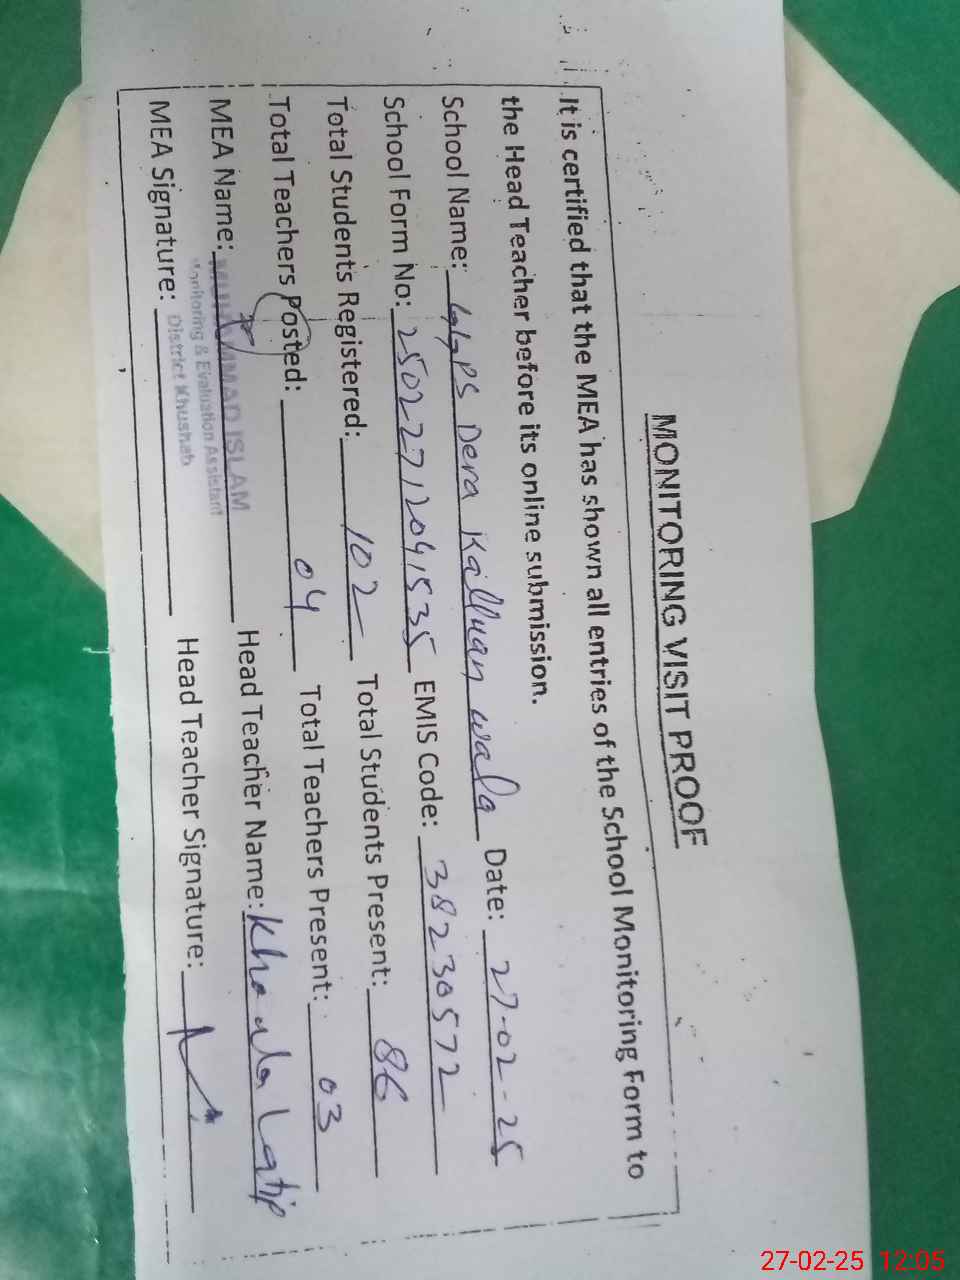 MONITORING VISIT PROOF
It is certified that the MEA has shown all entries of the School Monitoring Form to
the Head Teacher before its online submission.
School Name: GGPS Dera Kalluan wala Date: 27-02-25
School Form No: 25022712041535 EMIS Code: 38230572
Total Students Registered: 102 Total Students Present: 86
Total Teachers Posted: 04 Total Teachers Present: 03
MEA Name: MUHAMMAD ISLAM Head Teacher Name: Khaula Latif
Monitoring & Evaluation Assistant
District Khushab
MEA Signature: Head Teacher Signature:
27-02-25 12:05